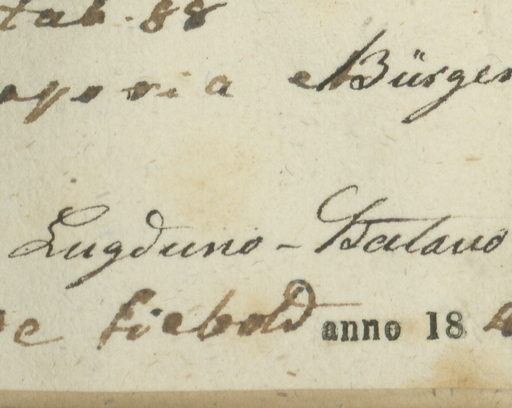 tab. 88
Bürger
Lugduno-Batavo
Siebold anno 18